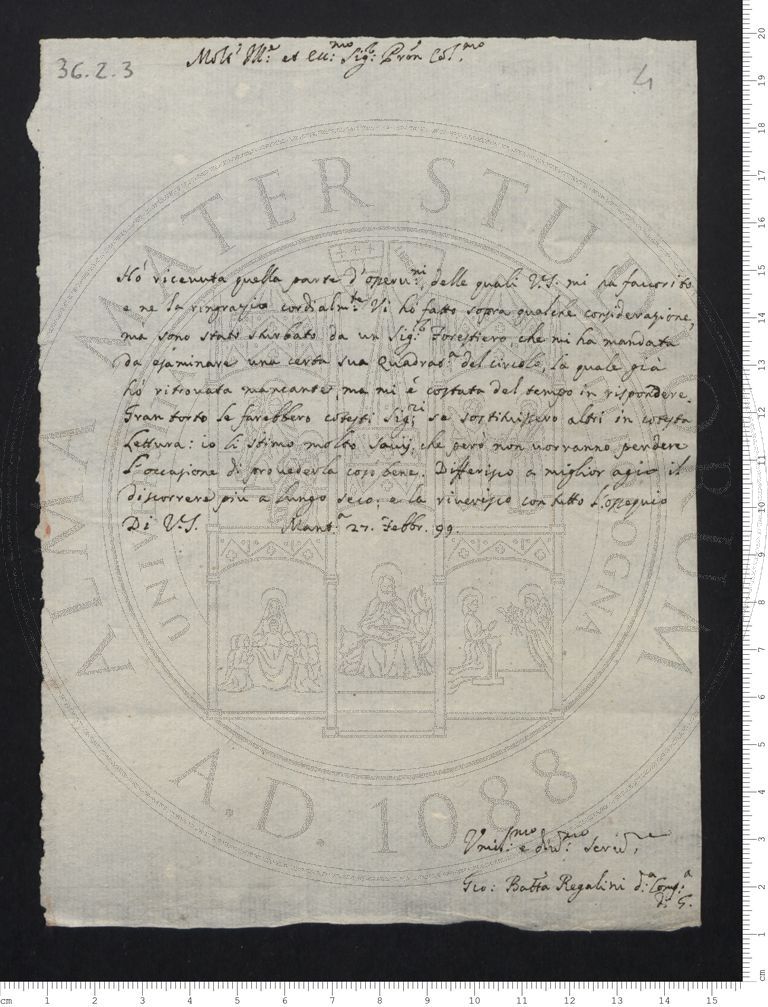 36.2.3
4
Molt' Ill.e et ecc.mo Sig.r Pron Col.mo
Hó ricevuta quella parte d'operu.ni, delle quali V.S. mi ha favorito
e ne la ringrazio cordialm.te Vi hó fatto sopra qualche considerazione,
ma sono stato sturbato da un Sig.r Forestiero, che mi ha mandata
da esaminare una certa sua Quadrat.a del circolo, la quale già
hó ritrovata mancante, ma mi é costata del tempo in rispondere.
Gran torto le farebbero cotesti Sig.ri se sostituissero altri in cotesta
Lettura: io li stimo molto savij, che però non vorranno perdere
l'occasione di provederla così bene. Differisco a miglior agio il
discorrere più a lungo seco: e la riverisco con tutto l'ossequio
Di V.S. Mant.a 27. Febbr. 99.
ALMA MATER STUDIORUM
A.D. 1088
Umil.mo e div.mo Servid.re
Gio: Batta Regalini d.a Comp.a
di G.
cm 1 2 3 4 5 6 7 8 9 10 11 12 13 14 15
cm 1 2 3 4 5 6 7 8 9 10 11 12 13 14 15 16 17 18 19 20